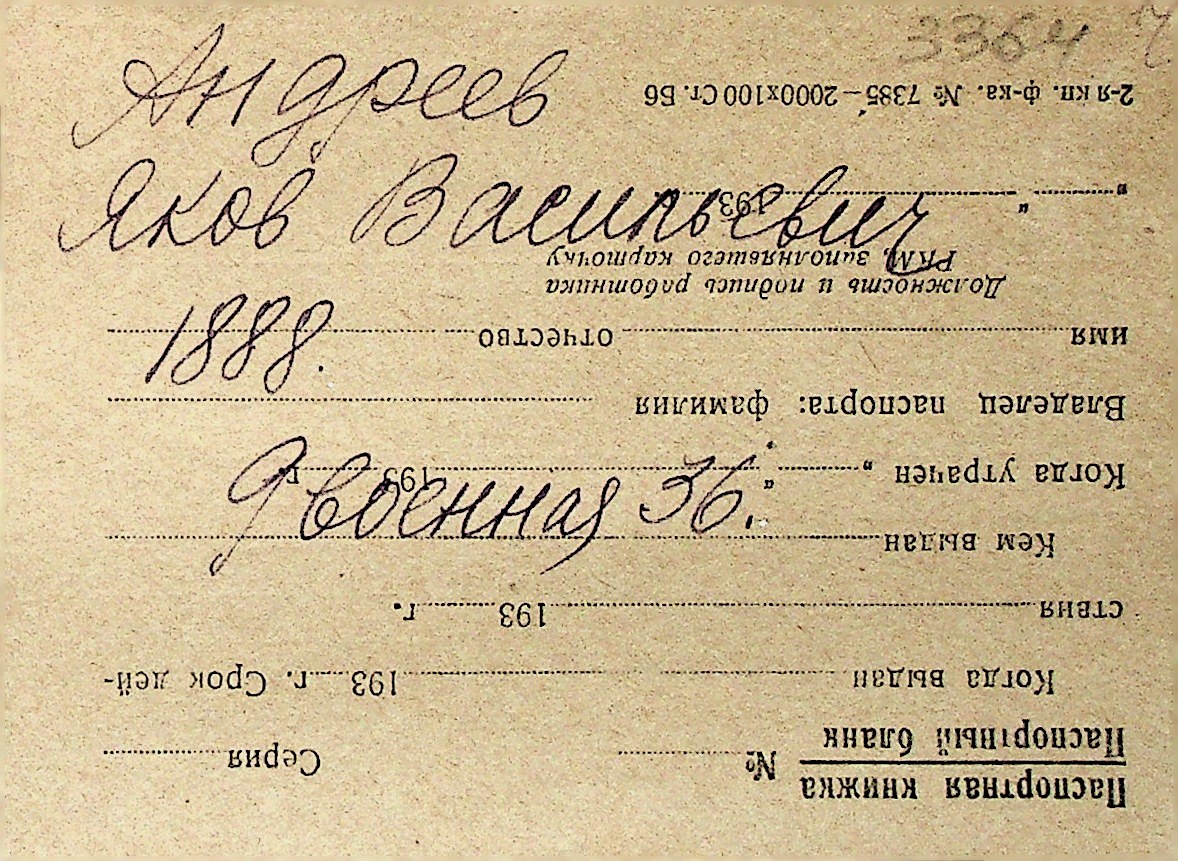 3354
Андреев
Яков Васильевич
1888.
9 военная 36.
Паспортная книжка
Паспортный бланк
№ Серия
Когда выдан 193 г. Срок дей-
ствия 193 г.
Кем выдан
Когда утрачен „ “ 193 г.
Владелец паспорта: фамилия
имя отчество
Должность и подпись работника
РКМ, заполнявшего карточку
„ “ 193
2-я кн. ф-ка. № 7385—2000х100 Ст. Б6